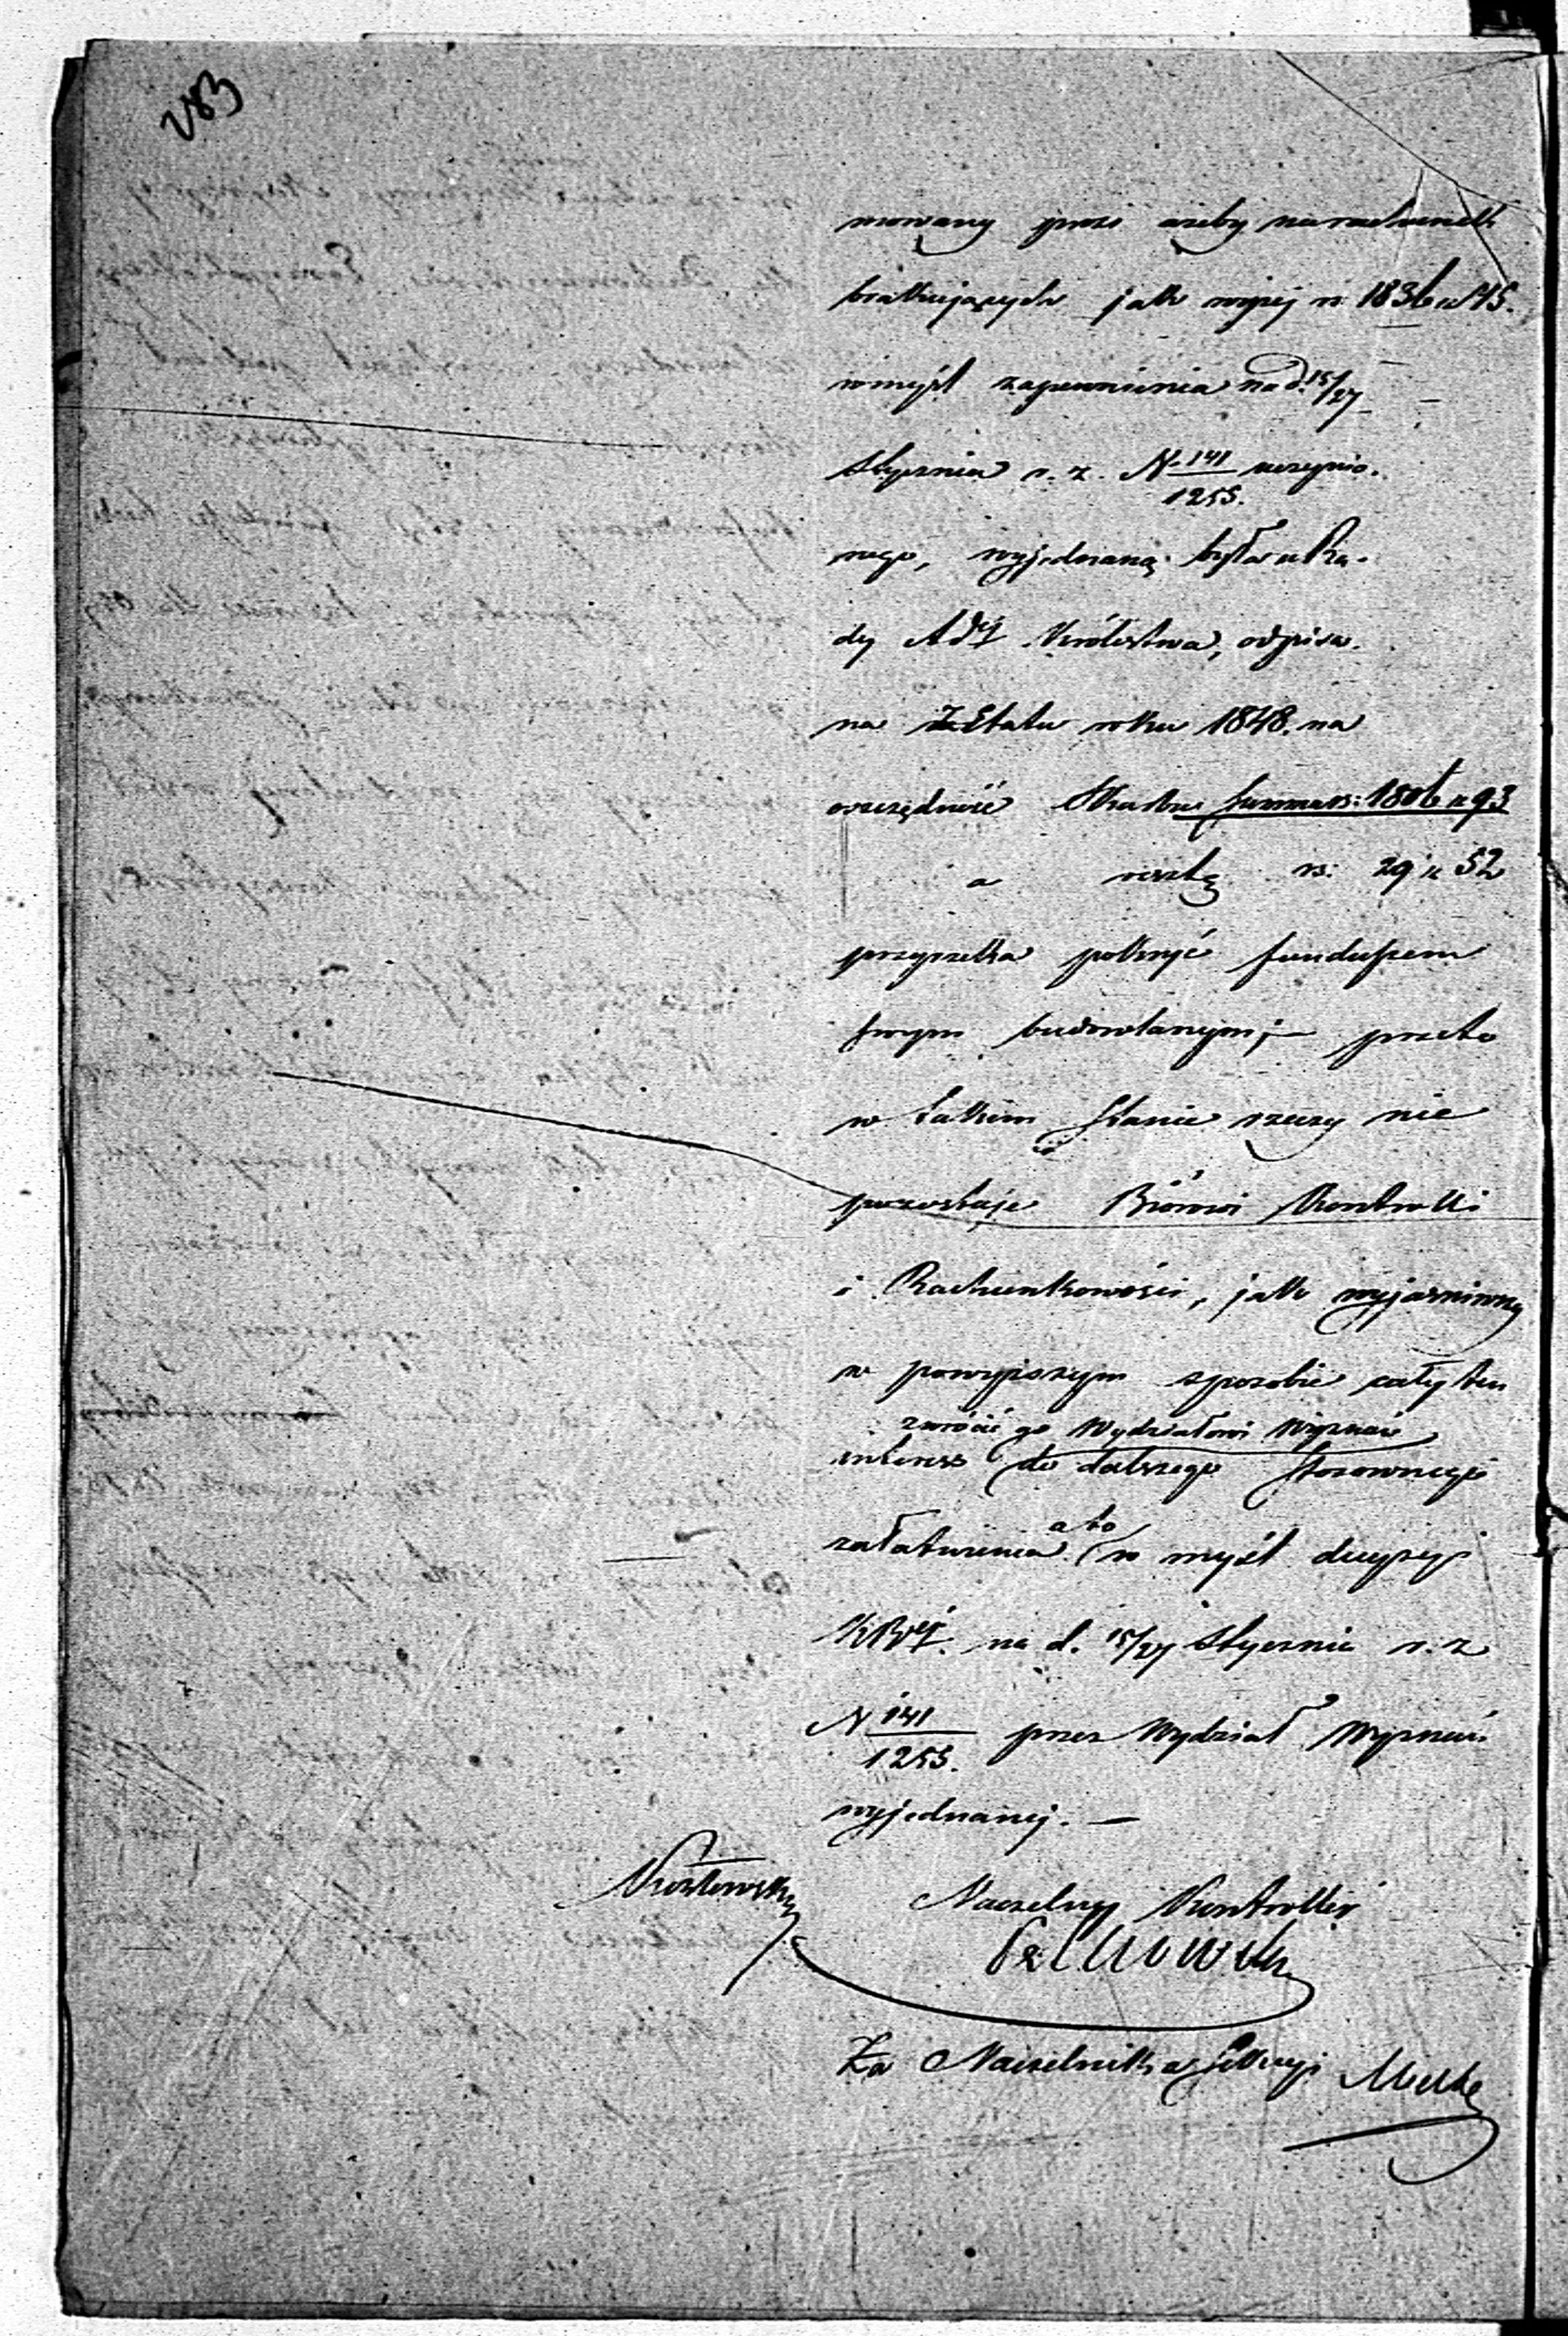 283
mowany prosi ażeby na rachunek
brakujących jak wyżej rs: 1836 k 45.
w myśl zapewnienia na d. 15/27
Stycznia r. z. N. 141/1255. uczynio-
nego, wyjednaną była u Ra-
dy Adej Królestwa, odpisa-
na z Etatu roku 1848. na
oszczędność Skarbu summa rs: 1806 k 93
a resztę rs: 29 k 52
przyrzeka pokryć funduszem
swym budowlanym; — przeto
w takim stanie rzeczy nie
pozostaje Biórowi Kontrolli
i Rachunkowości, jak wyjaśniwszy
w powyższym sposobie cały ten
zwrócić go Wydziałowi Wyznań
interess do dalszego stosownego
załatwienia a to w myśl decyzyi
KRej. na d. 15/27 Stycznia r. z
N 141/1255. przez Wydział Wyznań
wyjednanej. —
Kozłowski
Naczelny Kontroller
Za Naczelnika Sekcyi